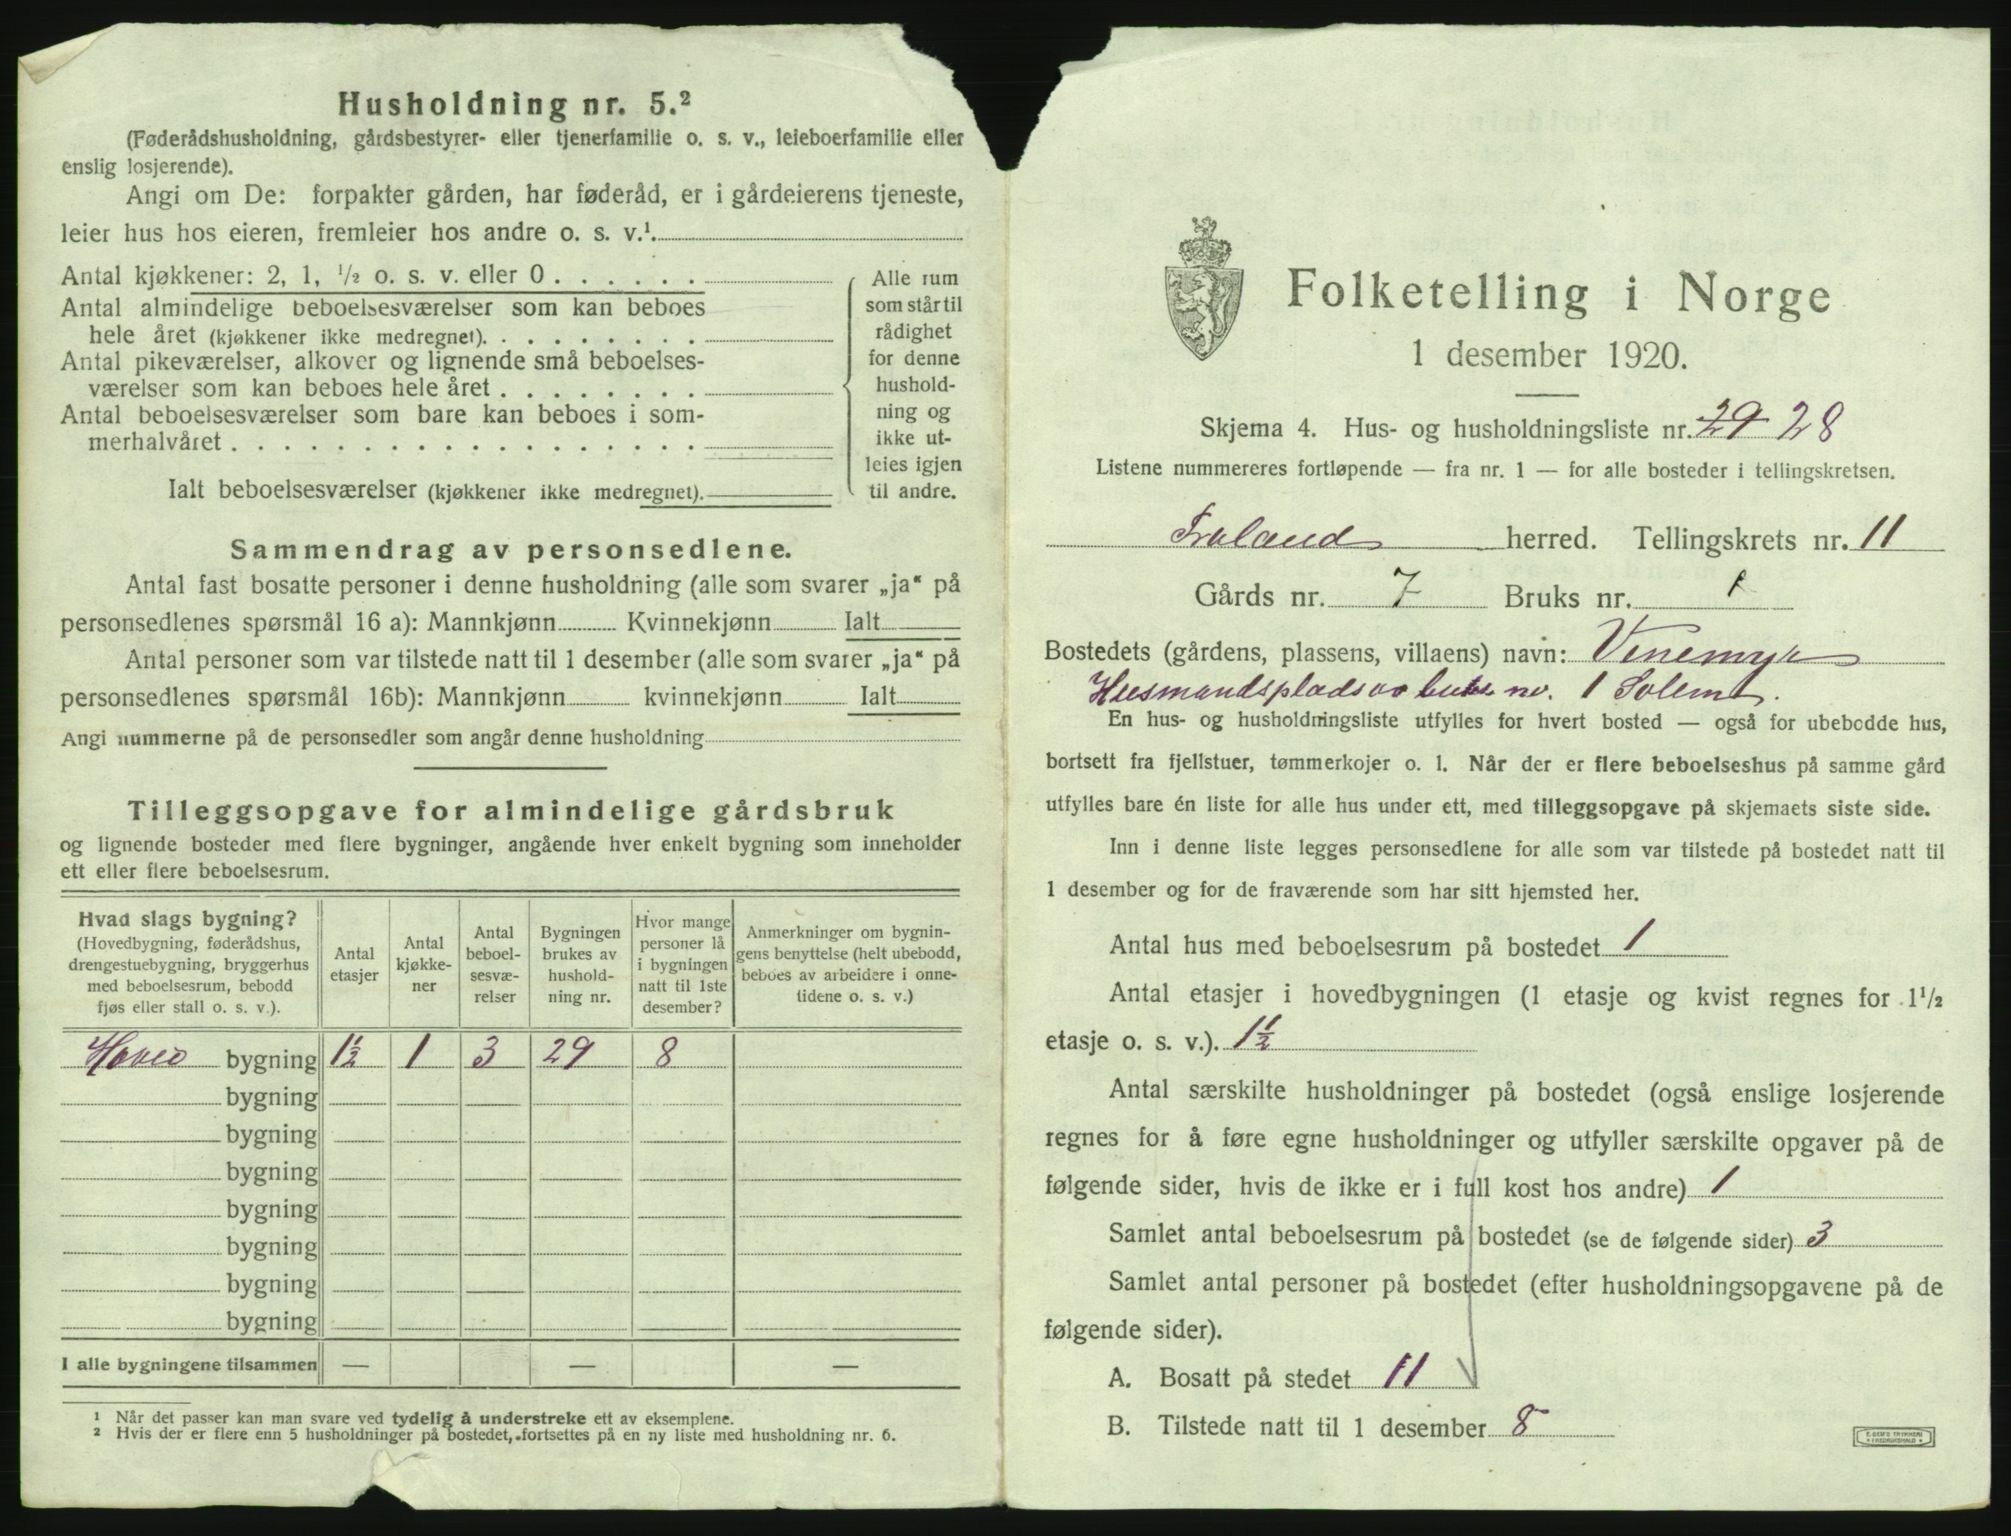 Husholdning nr. 5.²
(Føderådshusholdning, gårdsbestyrer- eller tjenerfamilie o. s. v., leieboerfamilie eller
enslig losjerende).
Angi om De: forpakter gården, har føderåd, er i gårdeierens tjeneste,
leier hus hos eieren, fremleier hos andre o. s. v.¹.
Antal kjøkkener: 2, 1, ½ o. s. v. eller 0 . . . . . .
Antal almindelige beboelsesværelser som kan beboes
hele året (kjøkkener ikke medregnet). . . . . . . . .
Antal pikeværelser, alkover og lignende små beboelses-
værelser som kan beboes hele året . . . . . . . .
Antal beboelsesværelser som bare kan beboes i som-
merhalvåret . . . . . . . . . . . . . . . . . .
Ialt beboelsesværelser (kjøkkener ikke medregnet).
Alle rum
som står til
rådighet
for denne
hushold-
ning og
ikke ut-
leies igjen
til andre.
Sammendrag av personsedlene.
Antal fast bosatte personer i denne husholdning (alle som svarer „ja“ på
personsedlenes spørsmål 16 a): Mannkjønn Kvinnekjønn Ialt
Antal personer som var tilstede natt til 1 desember (alle som svarer „ja“ på
personsedlenes spørsmål 16b): Mannkjønn kvinnekjønn Ialt
Angi nummerne på de personsedler som angår denne husholdning
Tilleggsopgave for almindelige gårdsbruk
og lignende bosteder med flere bygninger, angående hver enkelt bygning som inneholder
ett eller flere beboelsesrum.
Hvad slags bygning?
(Hovedbygning, føderådshus,
drengestuebygning, bryggerhus
med beboelsesrum, bebodd
fjøs eller stall o. s. v.).
Antal
etasjer
Antal
kjøkke-
ner
Antal
beboel-
sesvæ-
relser
Bygningen
brukes av
hushold-
ning nr.
Hvor mange
personer lå
i bygningen
natt til 1ste
desember?
Anmerkninger om bygnin-
gens benyttelse (helt ubebodd,
beboes av arbeidere i onne-
tidene o. s. v.)
Hoved bygning 1½ 1 3 29 8
bygning
bygning
bygning
bygning
bygning
bygning
bygning
I alle bygningene tilsammen — — —
¹ Når det passer kan man svare ved tydelig å understreke ett av eksemplene.
² Hvis der er flere enn 5 husholdninger på bostedet, fortsettes på en ny liste med husholdning nr. 6.
Folketelling i Norge
1 desember 1920.
Skjema 4. Hus- og husholdningsliste nr. 29 28
Listene nummereres fortløpende — fra nr. 1 — for alle bosteder i tellingskretsen.
Froland herred. Tellingskrets nr. 11
Gårds nr. 7 Bruks nr. 1
Bostedets (gårdens, plassens, villaens) navn: Venemyr
Husmandsplads no. 1 Solem.
En hus- og husholdningsliste utfylles for hvert bosted — også for ubebodde hus,
bortsett fra fjellstuer, tømmerkojer o. l. Når der er flere beboelseshus på samme gård
utfylles bare én liste for alle hus under ett, med tilleggsopgave på skjemaets siste side.
Inn i denne liste legges personsedlene for alle som var tilstede på bostedet natt til
1 desember og for de fraværende som har sitt hjemsted her.
Antal hus med beboelsesrum på bostedet 1
Antal etasjer i hovedbygningen (1 etasje og kvist regnes for 1½
etasje o. s. v.). 1½
Antal særskilte husholdninger på bostedet (også enslige losjerende
regnes for å føre egne husholdninger og utfyller særskilte opgaver på de
følgende sider, hvis de ikke er i full kost hos andre) 1
Samlet antal beboelsesrum på bostedet (se de følgende sider) 3
Samlet antal personer på bostedet (efter husholdningsopgavene på de
følgende sider).
A. Bosatt på stedet 11
B. Tilstede natt til 1 desember 8